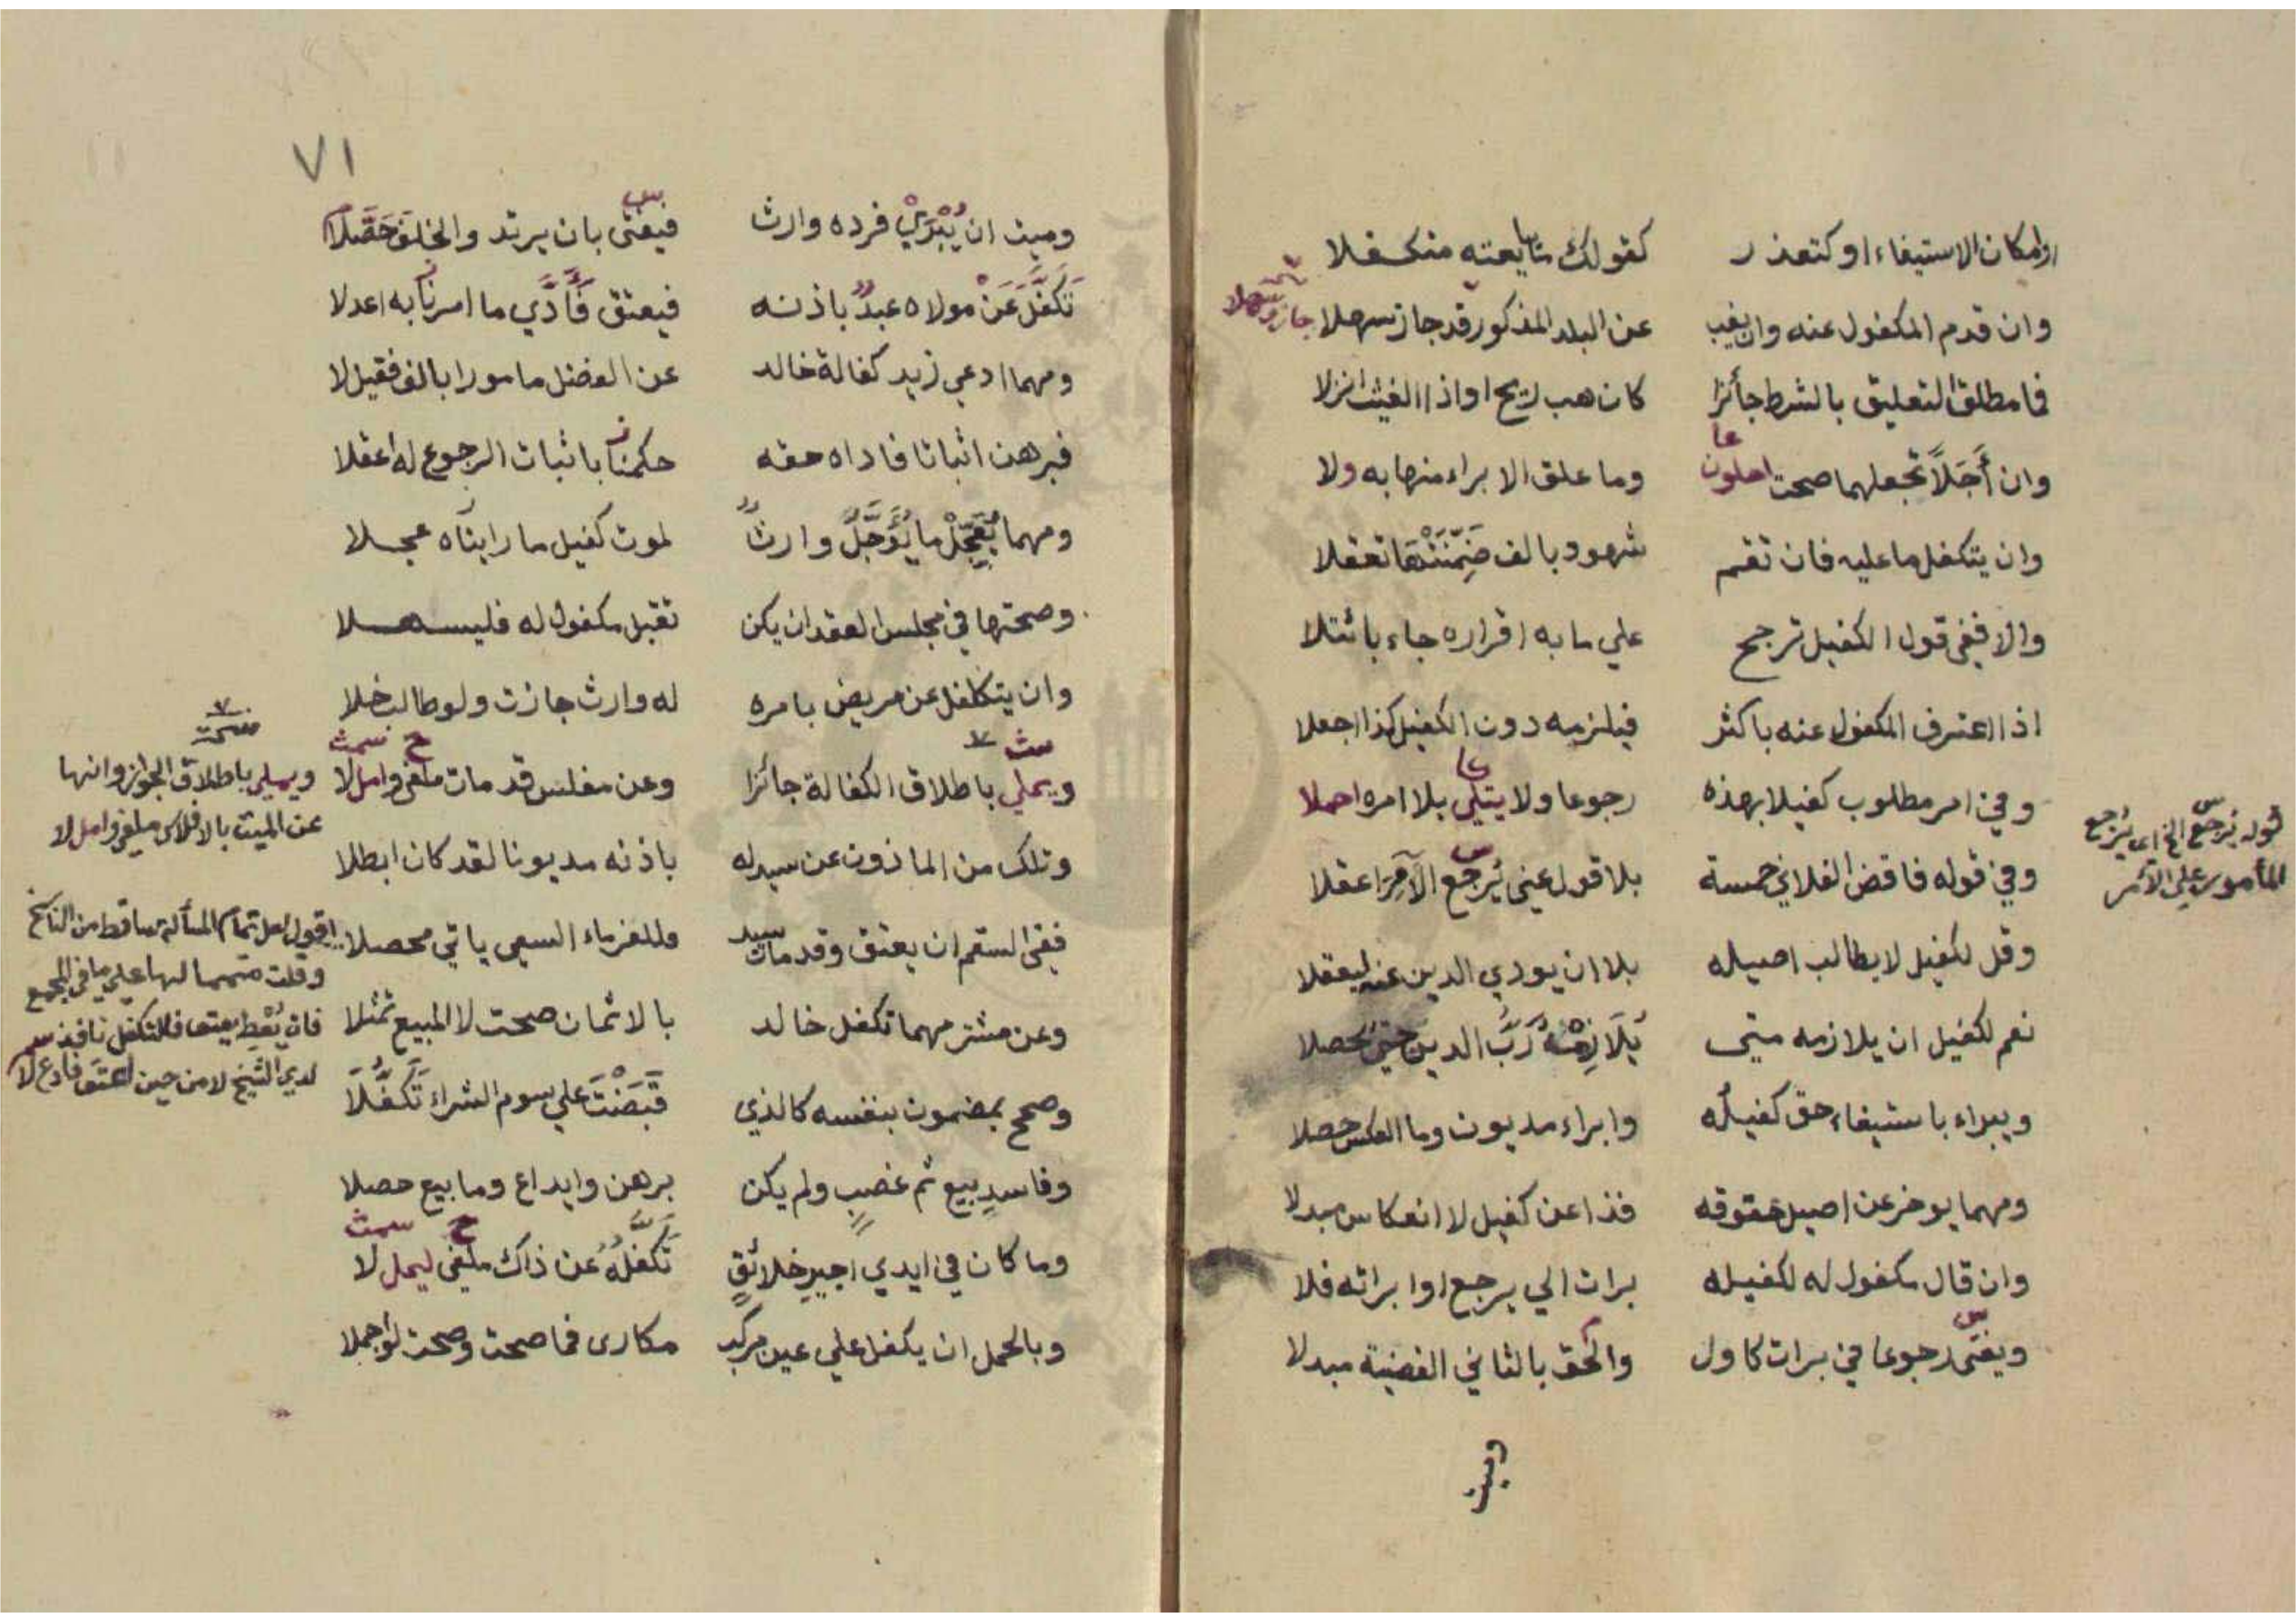 وامكان الاستيفاء او كتعذر كقولك ما بايعته متكفلا
وان قدم المكفول عنه وان يغب عن البلد المذكور قد جاز سهلا
فما مطلق التعليق بالشرط جائزا كان هب ريح او اذا الغيث انزلا
وان أَجَلاً تجعلهما صحت وما علق الابراء منها به ولا
وان يتكفل ما عليه فان تقم شهود بالف ضمنتها تعقلا
والا ففي قول الكفيل ترجح علي ما به اقراره جاء بائتلا
اذا اعترف المكفول عنه باكثر فيلزمه دون الكفيل كذا اجعلا
وفي امر مطلوب كفيلا بهذه رجوعا ولا يتلى بلا امره احملا
وفي قوله فاقض الفلاني خمسة بلا قول عني يُرجع الآمِرَ اعقلا
وقل لكفيل لا يطالب اصيله بلا ان يودي الدين عنه ليعقلا
نعم لكفيل ان يلازمه متى يُلَازِمْهُ رَبُّ الدين حتي تحصلا
ويبراء باستيفاء حق كفيله وابراء مديون وما العكس حصلا
ومهما يوخر عن اصيل حقوقه فذا عن كفيل لا انعكاس مبدلا
وان قال مكفول له لكفيله برات الي يرجع او ابراته فلا
ويفتى رجوعا في برات كاول والحق بالثاني القضية مبدلا
وميت
قوله يُرجع الخ اي يرجع
المأمور علي الآمر
٧١
وميت ان يُبْرَيْ فرده وارث فيفتى بان يرتد والخلف حَصَّلا
تَكَفَّلَ عَنْ مولاه عبدٌ باذنه فيعتق فَأَدَّي ما امرنا به اعدلا
ومهما ادعي زيد كفالة خالد عن الفضل مامورا بالف فقيل لا
فبرهن اثباتا فاداه حقه حكمنا باثبات الرجوع له اعقلا
ومهما يُعَجِّلْ ما يُؤَجَّلُ وارثٌ لموت كفيل ما رايناه عجلا
وصحتها في مجلس العقد ان يكن تقبل مكفول له فليسهلا
وان يتكلفل عن مريض بامره له وارث جازت ولو طالب خلا
ويملي باطلاق الكفالة جائزا وعن مفلس قد مات ملغى وامل لا
وتلك من الماذون عن سيد له باذنه مديونا لقد كان ابطلا
ففي السقم ان يعتق وقد مات سيد وللغرماء السعي ياتي محصلا
وعن مشتر مهما تكفل خالد بالاثمان صحت لا المبيع تمثلا
وصح بمضمون بنفسه كالذي قَبَضْتَ علي سوم الشراء تَكَفَّلَا
وفاسدِ بيع ثم غصبٍ ولم يكن برهن وايداع وما بيع حصلا
وما كان في ايدي اجيرِ خلائقٍ تَكَفُّلُهُ عن ذاك ملغى ليمل لا
وبالحمل ان يكفل علي عين مركب مكارى فما صحت وصحت لو اجملا
نسخة
ويملي باطلاق الجواز وانها
عن الميت بالافلاس ملغى وامل لا
اقول لعل تمام المسألة ساقط من الناسخ
وقلت متمما لها علي ما في المجمع
فان يُعْطِ يعتق فالتكفل نافذ
لدي الشيخ لا من حين اعتق فادع لا